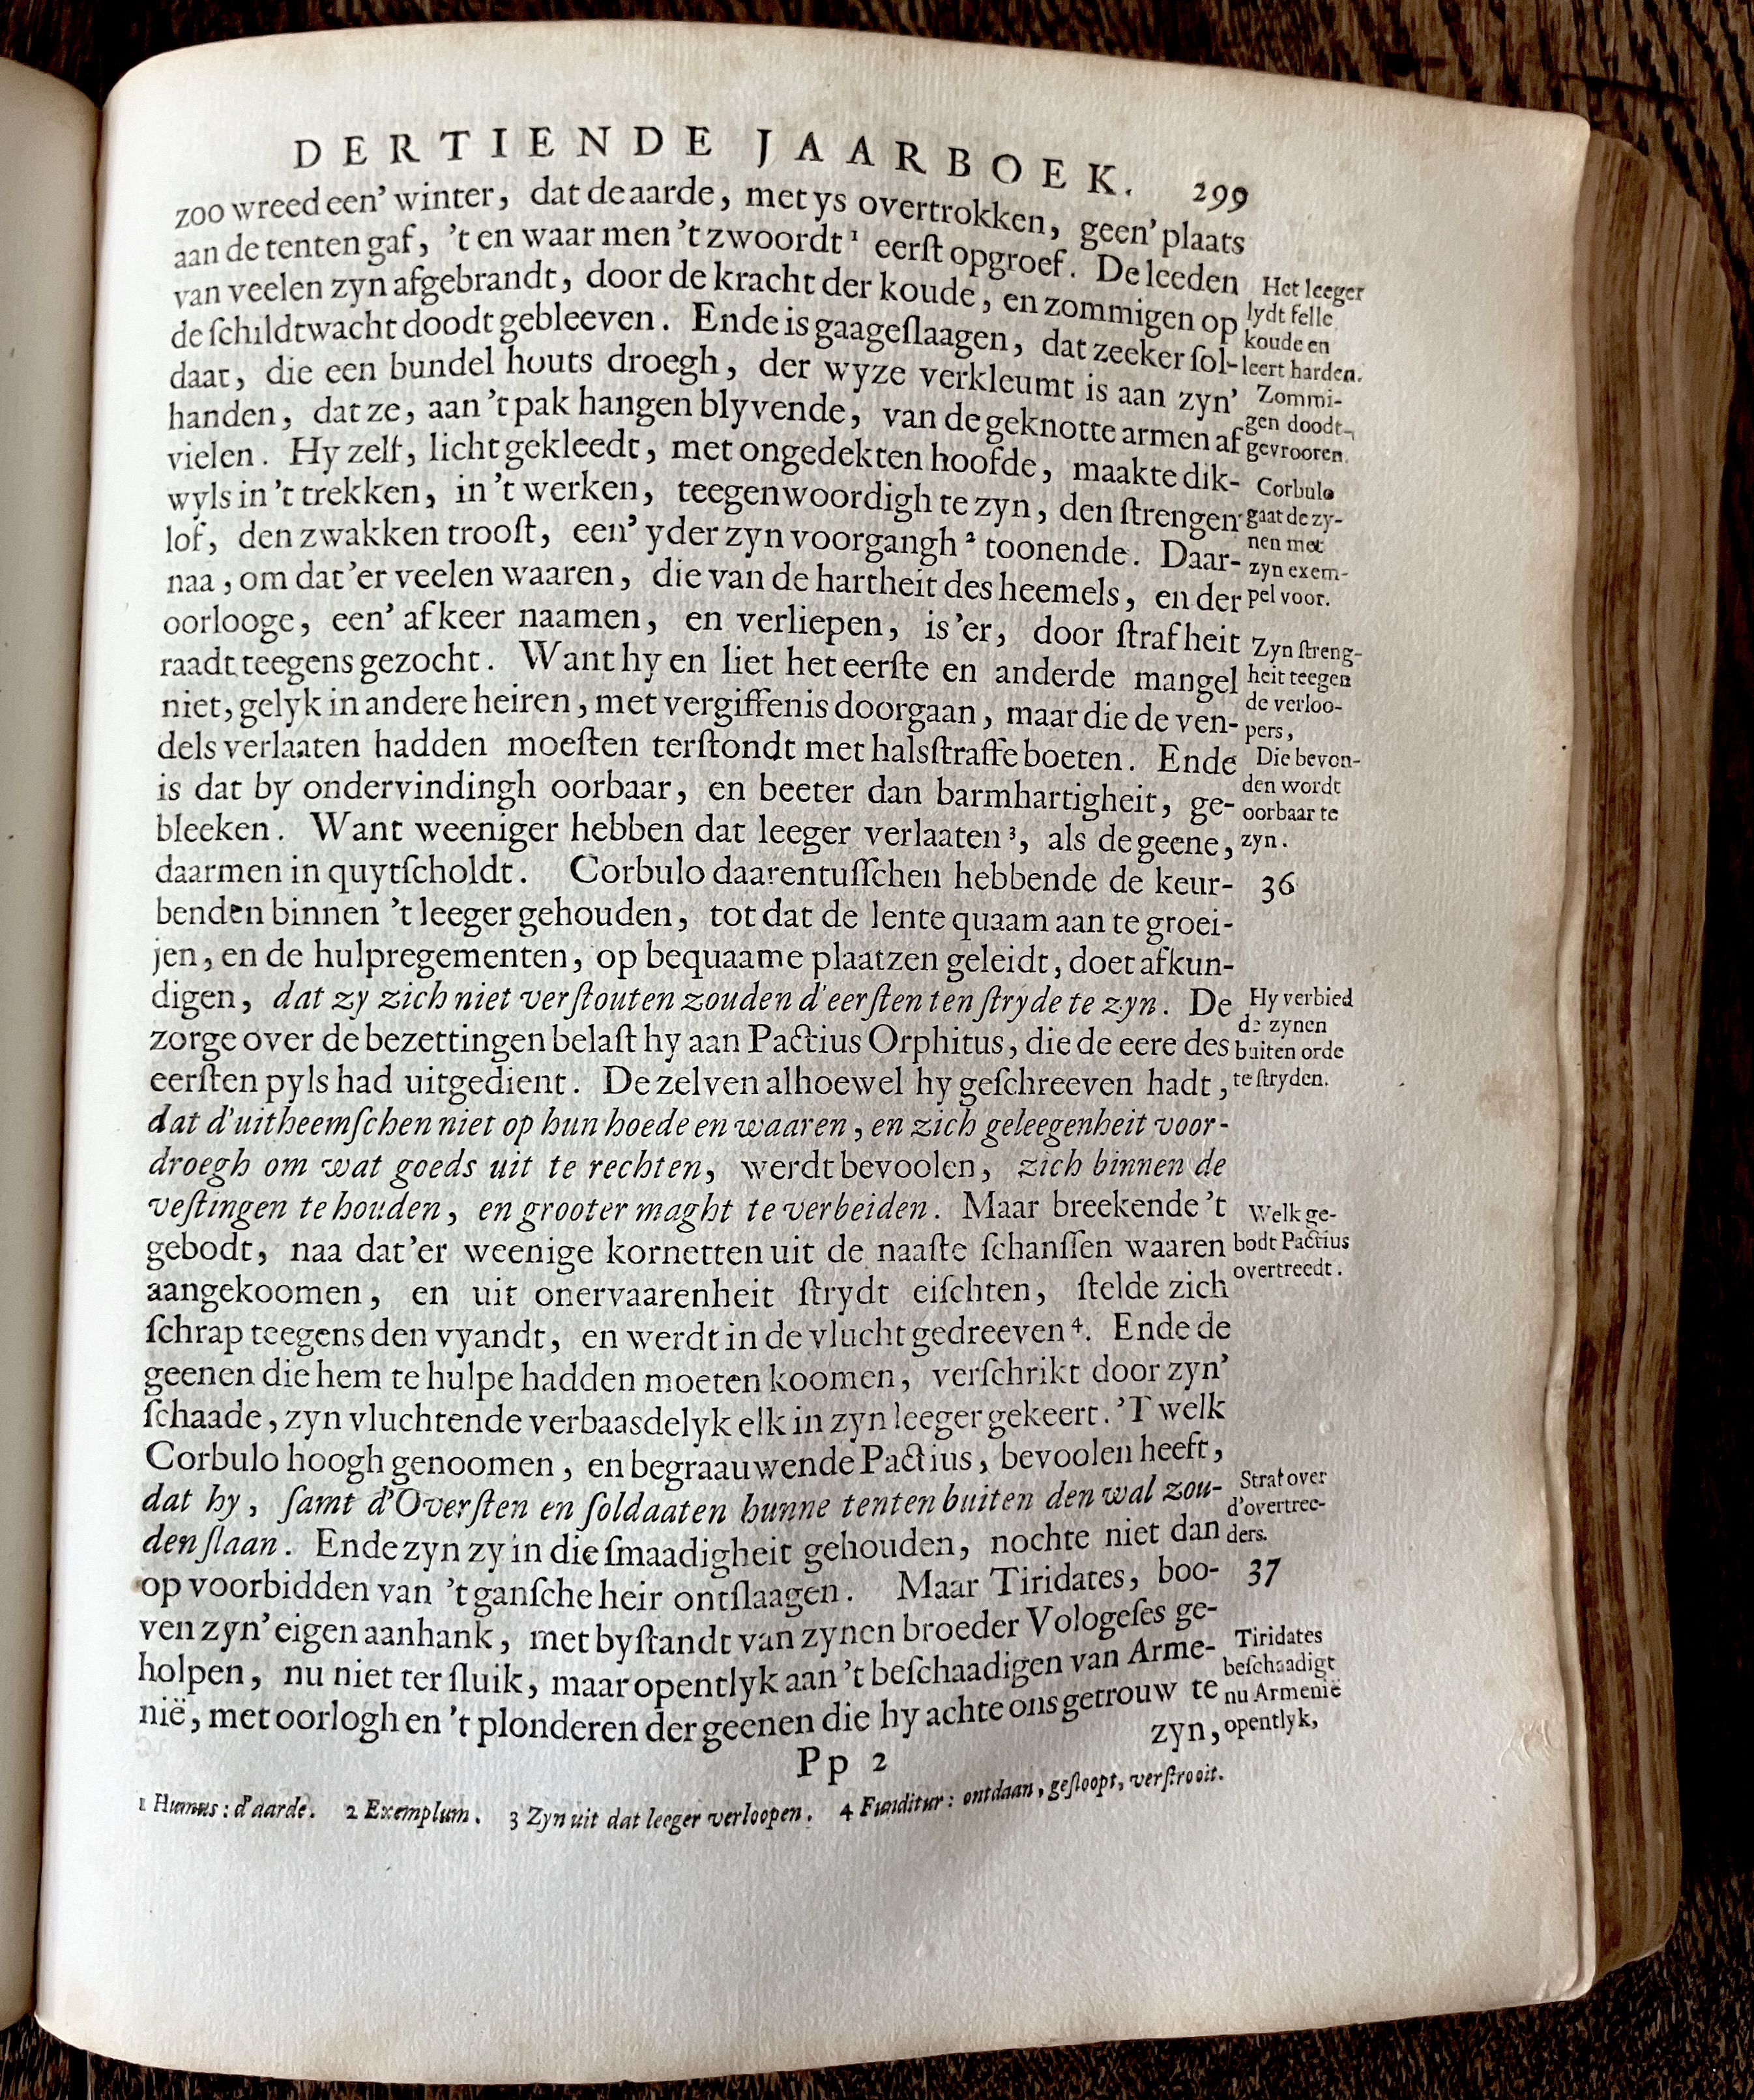 DERTIENDE JAARBOEK. 299
zoo wreed een' winter, dat de aarde, met ys overtrokken, geen' plaats
aan de tenten gaf, 't en waar men 't zwoordt¹ eerſt opgroef. De leeden
van veelen zyn afgebrandt, door de kracht der koude, en zommigen op
de ſchildtwacht doodt gebleeven. Ende is gaageſlaagen, dat zeeker ſol-
daat, die een bundel houts droegh, der wyze verkleumt is aan zyn'
handen, dat ze, aan 't pak hangen blyvende, van de geknotte armen af
vielen. Hy zelf, licht gekleedt, met ongedekten hoofde, maakte dik-
wyls in 't trekken, in 't werken, teegenwoordigh te zyn, den ſtrengen
lof, den zwakken trooſt, een' yder zyn voorgangh² toonende. Daar-
naa, om dat'er veelen waaren, die van de hartheit des heemels, en der
oorlooge, een' afkeer naamen, en verliepen, is'er, door ſtrafheit
raadt teegens gezocht. Want hy en liet het eerſte en anderde mangel
niet, gelyk in andere heiren, met vergiffenis doorgaan, maar die de ven-
dels verlaaten hadden moeſten terſtondt met halsſtraffe boeten. Ende
is dat by ondervindingh oorbaar, en beeter dan barmhartigheit, ge-
bleeken. Want weeniger hebben dat leeger verlaaten³, als de geene,
daarmen in quytſcholdt. Corbulo daarentuſſchen hebbende de keur-
benden binnen 't leeger gehouden, tot dat de lente quaam aan te groei-
jen, en de hulpregementen, op bequaame plaatzen geleidt, doet afkun-
digen, dat zy zich niet verſtouten zouden d'eerſten ten ſtryde te zyn. De
zorge over de bezettingen belaſt hy aan Pactius Orphitus, die de eere des
eerſten pyls had uitgedient. De zelven alhoewel hy geſchreeven hadt,
dat d'uitheemſchen niet op hun hoede en waaren, en zich geleegenheit voor-
droegh om wat goeds uit te rechten, werdt bevoolen, zich binnen de
veſtingen te houden, en grooter maght te verbeiden. Maar breekende 't
gebodt, naa dat'er weenige kornetten uit de naaſte ſchanſſen waaren
aangekoomen, en uit onervaarenheit ſtrydt eiſchten, ſtelde zich
ſchrap teegens den vyandt, en werdt in de vlucht gedreeven⁴. Ende de
geenen die hem te hulpe hadden moeten koomen, verſchrikt door zyn'
ſchaade, zyn vluchtende verbaasdelyk elk in zyn leeger gekeert. 'T welk
Corbulo hoogh genoomen, en begraauwende Pactius, bevoolen heeft,
dat hy, ſamt d'Overſten en ſoldaaten hunne tenten buiten den wal zou-
den ſlaan. Ende zyn zy in die ſmaadigheit gehouden, nochte niet dan
op voorbidden van 't ganſche heir ontſlaagen. Maar Tiridates, boo-
ven zyn' eigen aanhank, met byſtandt van zynen broeder Vologeſes ge-
holpen, nu niet ter ſluik, maar opentlyk aan 't beſchaadigen van Arme-
nië, met oorlogh en 't plonderen der geenen die hy achte ons getrouw te
zyn,
Het leeger
lydt felle
koude en
leert harden.
Zommi-
gen doodt-
gevrooren.
Corbulo
gaat de zy-
nen met
zyn exem-
pel voor.
Zyn ſtreng-
heit teegen
de verloo-
pers,
Die bevon-
den wordt
oorbaar te
zyn.
36
Hy verbied
de zynen
buiten orde
te ſtryden.
Welk ge-
bodt Pactius
overtreedt.
Straf over
d'overtree-
ders.
37
Tiridates
beſchaadigt
nu Armenië
opentlyk,
Pp 2
1 Humus: d'aarde. 2 Exemplum. 3 Zyn uit dat leeger verloopen. 4 Funditur: ontdaan, geſloopt, verſtrooit.